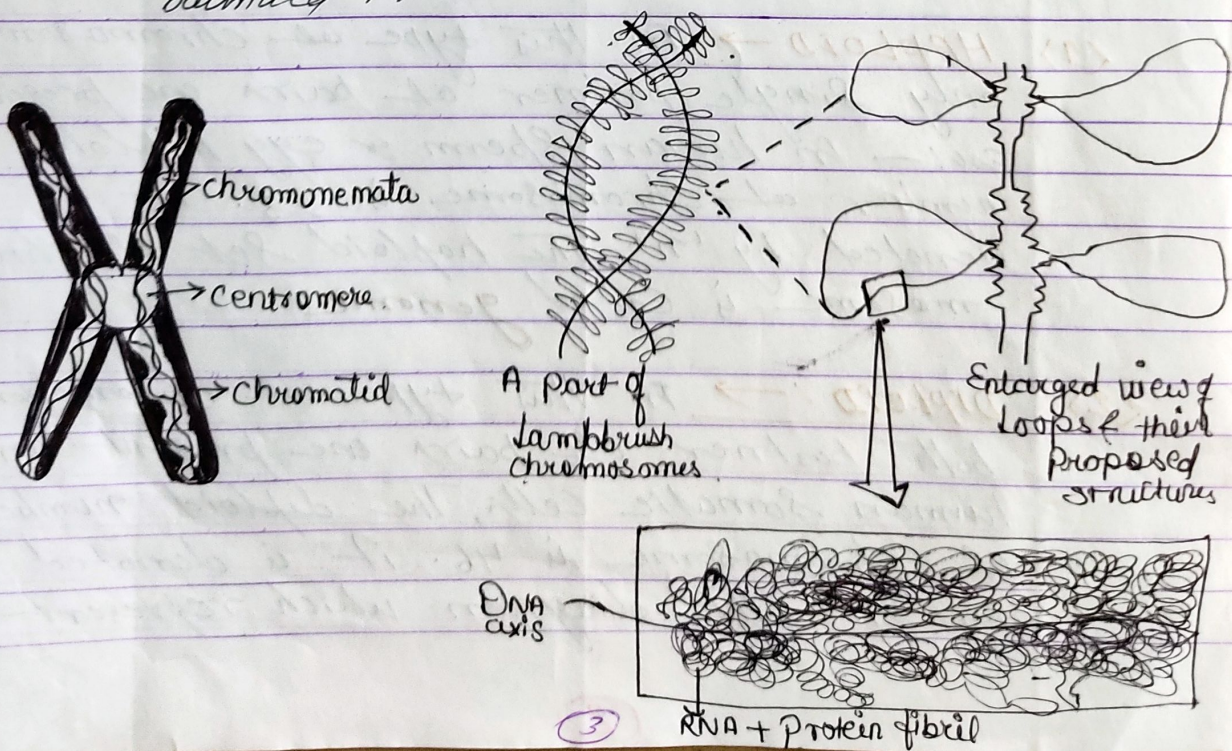 Chromonemata
Centromere.
Chromatid
A part of
Lampbrush
chromosomes.
Enlarged view of
Loops & their
proposed
structures
DNA
axis
RNA + Protein fibril
3